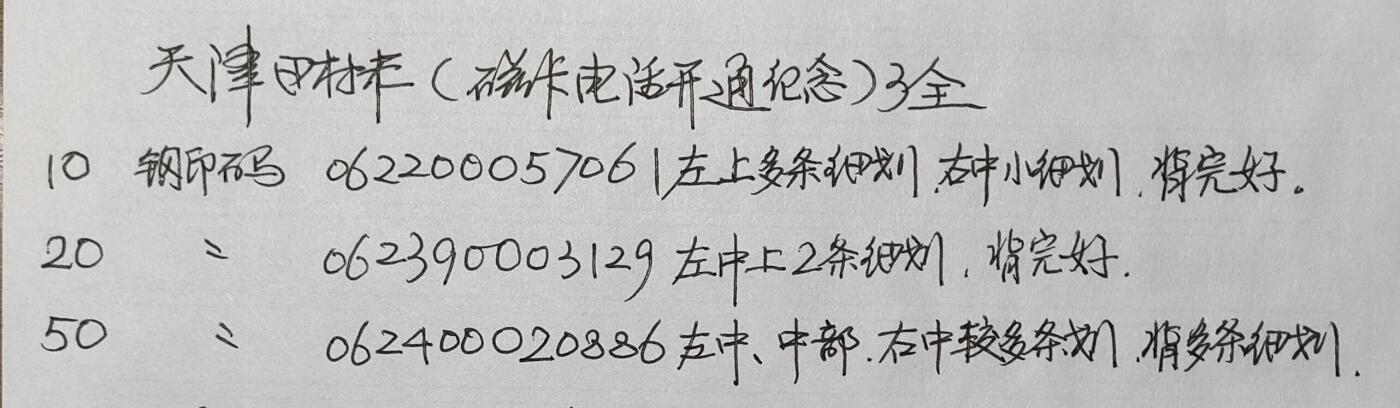 天津田村卡(磁卡电话开通纪念)3全
10 钢印码 062200057061左上多条细划.右中小细划.背完好。
20 〃 062390003129左中上2条细划.背完好.
50 〃 062400020886左中、中部.右中较多条划.背多条细划.